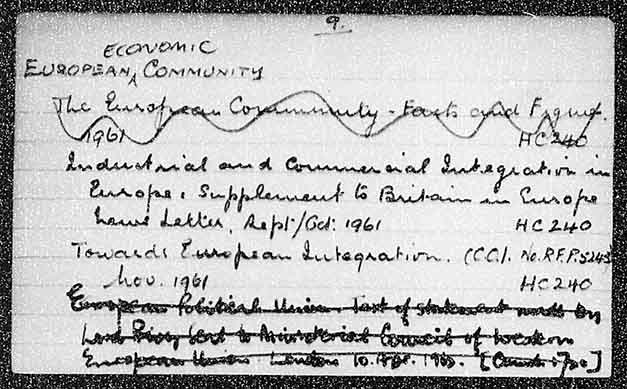 9.
ECONOMIC
EUROPEAN COMMUNITY
The European Community - Facts and Figures.
1961 HC240
Industrial and Commercial Integration in
Europe, Supplement to Britain in Europe
News Letter, Sept/Oct: 1961 HC240
Towards European Integration. (COI. No. R.F.P. 5243
Nov. 1961 HC240
European Political Union. text of statement made by
Lord Privy Seal to Ministerial Council of Western
European Union London 10. Apr. 1962.